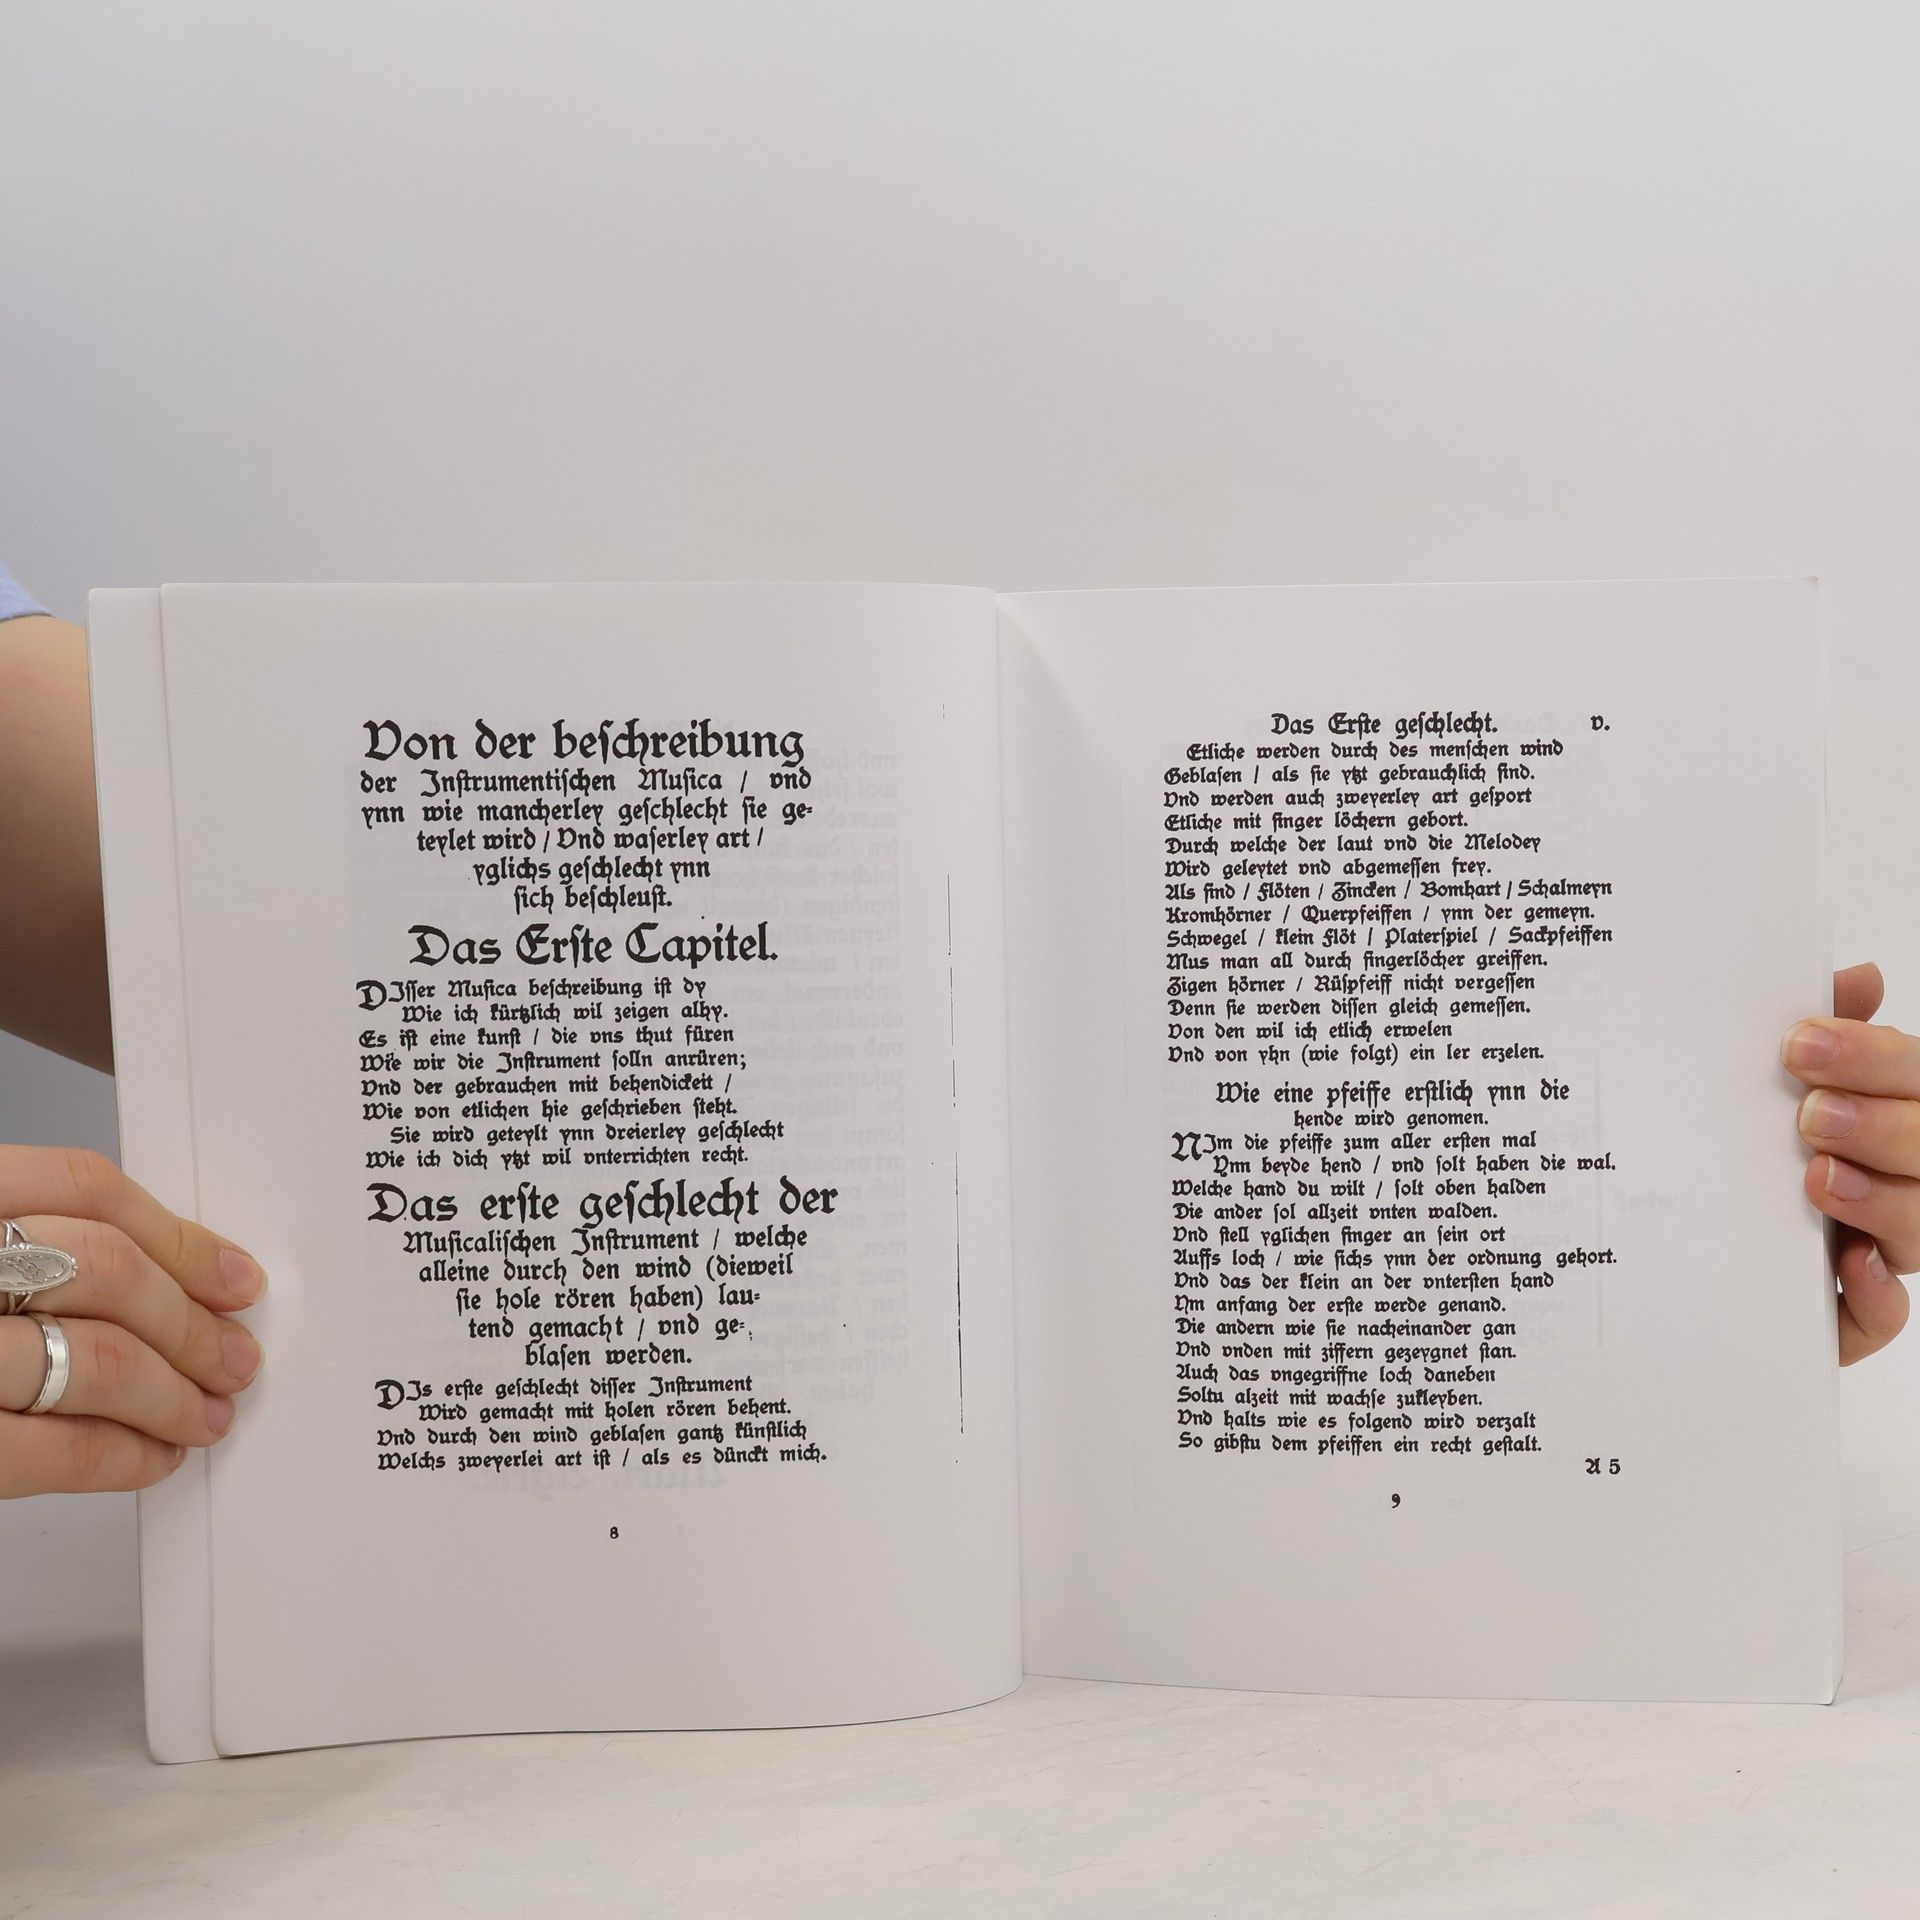 Von der beschreibung
der Instrumentischen Musica / vnd
ynn wie mancherley geschlecht sie ge-
teylet wird / Vnd waserley art /
yglichs geschlecht ynn
sich beschleust.
Das Erste Capitel.
DIsser Musica beschreibung ist dy
Wie ich kürtzlich wil zeigen alhy.
Es ist eine kunst / die vns thut füren
Wie wir die Instrument solln anrüren;
Vnd der gebrauchen mit behendickeit /
Wie von etlichen hie geschrieben steht.
Sie wird geteylt ynn dreierley geschlecht
Wie ich dich ytzt wil vnterrichten recht.
Das erste geschlecht der
Musicalischen Instrument / welche
alleine durch den wind (dieweil
sie hole rören haben) lau-
tend gemacht / vnd ge-
blasen werden.
DIs erste geschlecht disser Instrument
Wird gemacht mit holen rören behent.
Vnd durch den wind geblasen gantz künstlich
Welchs zweyerlei art ist / als es dünckt mich.
8
Das Erste geschlecht. v.
Etliche werden durch des menschen wind
Geblasen / als sie ytzt gebrauchlich sind.
Vnd werden auch zweyerley art gesport
Etliche mit finger löchern gebort.
Durch welche der laut vnd die Melodey
Wird geleytet vnd abgemessen frey.
Als sind / Flöten / Zincken / Bomhart / Schalmeyn
Kromhörner / Querpfeiffen / ynn der gemeyn.
Schwegel / klein Flöt / Platerspiel / Sackpfeiffen
Mus man all durch fingerlöcher greiffen.
Zigen hörner / Rüspfeiff nicht vergessen
Denn sie werden dissen gleich gemessen.
Von den wil ich etlich erwelen
Vnd von yhn (wie folgt) ein ler erzelen.
Wie eine pfeiffe erstlich ynn die
hende wird genomen.
NIm die pfeiffe zum aller ersten mal
Ynn beyde hend / vnd solt haben die wal.
Welche hand du wilt / solt oben halden
Die ander sol allzeit vnten walden.
Vnd stell yglichen finger an sein ort
Auffs loch / wie sichs ynn der ordnung gehort.
Vnd das der klein an der vntersten hand
Ym anfang der erste werde genand.
Die andern wie sie nacheinander gan
Vnd vnden mit ziffern gezeygnet stan.
Auch das vngegriffne loch daneben
Soltu alzeit mit wachse zukleyben.
Vnd halts wie es folgend wird verzalt
So gibstu dem pfeiffen ein recht gestalt.
A 5
9